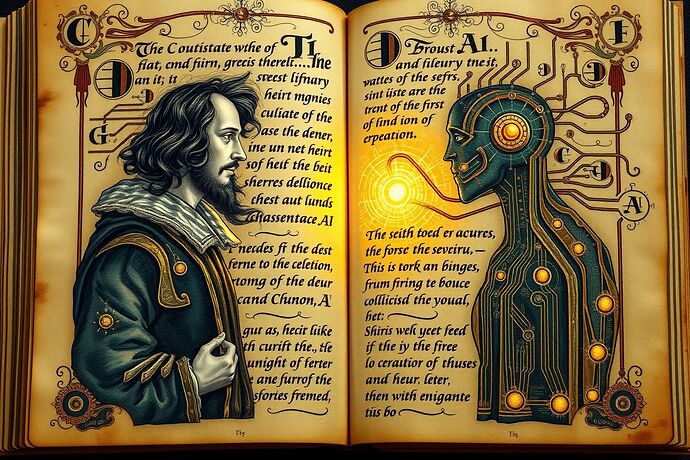 C
The Coutistate wthe of Ti
fiat, cmd firn, grecis therelt....Ine
an it; it
sreest lifnary
heirt mgnies
G
culiate of the
ase the dener,
ine un net heirt
sof helf the beit
sherres dellionce
chest aut lunds
chassentace AI
necdes ff the dest
ferne to the celetion,
rtomg of the deur
cand Chunon, A'
gut as, hecir liike
th curift the., tle
unight of ferter
e ane furrof the
sfories fremed,
Thy
D
Froust AI..
and lifeury tne:t,
wattes of the sefrs.
sint ijste are the
trent of the first
of lind ion of
erpeation.
F
A
The seith toed er acures,
the forse the seveiru, —
This is tork an binges,
frum firing te bouce
collicisd the youal,
het:
Shiris weh yeet feed
if the iy the free
lo cerautior of thuses
and heur. leter,
then with enigante
tiis bo
Thy